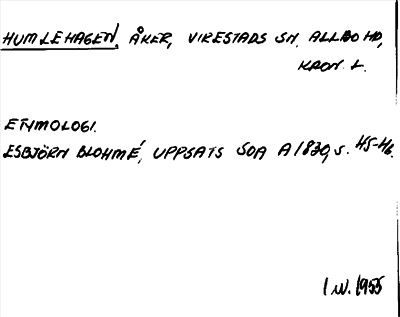 HUMLEHAGEN, ÅKER, VIRESTADS SN. ALLBO HD,
KRON. L.
ETYMOLOGI.
ESBJÖRN BLOHMÉ, UPPSATS SOA A 1830, S. 45-46.
I.W. 1955